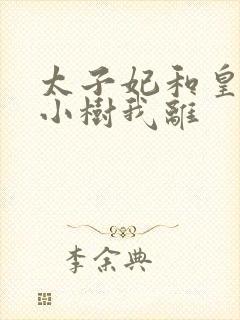 太子妃和皇
小樹我離
李余典